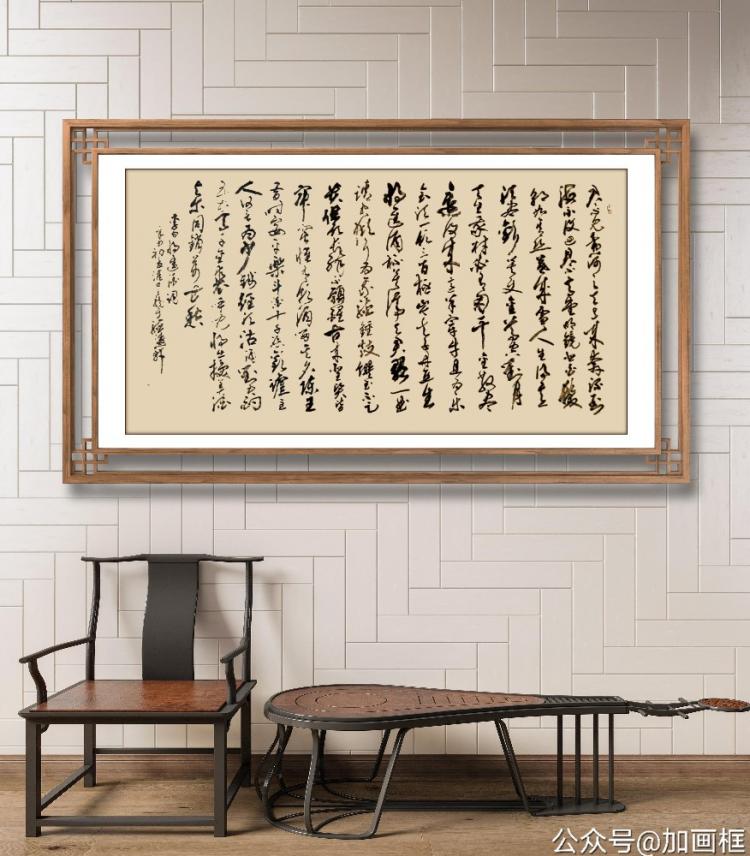 君不见黄河之水天上来奔流到
海不復回君不见高堂明镜悲白髮
朝如青丝暮成雪人生得意
须尽欢莫使金樽空对月
天生我材必有用千金散尽
还復来烹羊宰牛且为乐
会须一饮三百杯岑夫子丹丘生
将进酒杯莫停与君歌一曲
请君倾耳为我听钟鼓馔玉不足
贵但愿长醉不愿醒古来圣贤皆
寂寞惟有饮者留其名陈王
昔时宴平乐斗酒十千恣欢谑主
人何为言少钱径须沽酒对君酌
五花马千金裘呼儿将出换美酒
与尔同销万古愁
李白将进酒
公众号@加画框